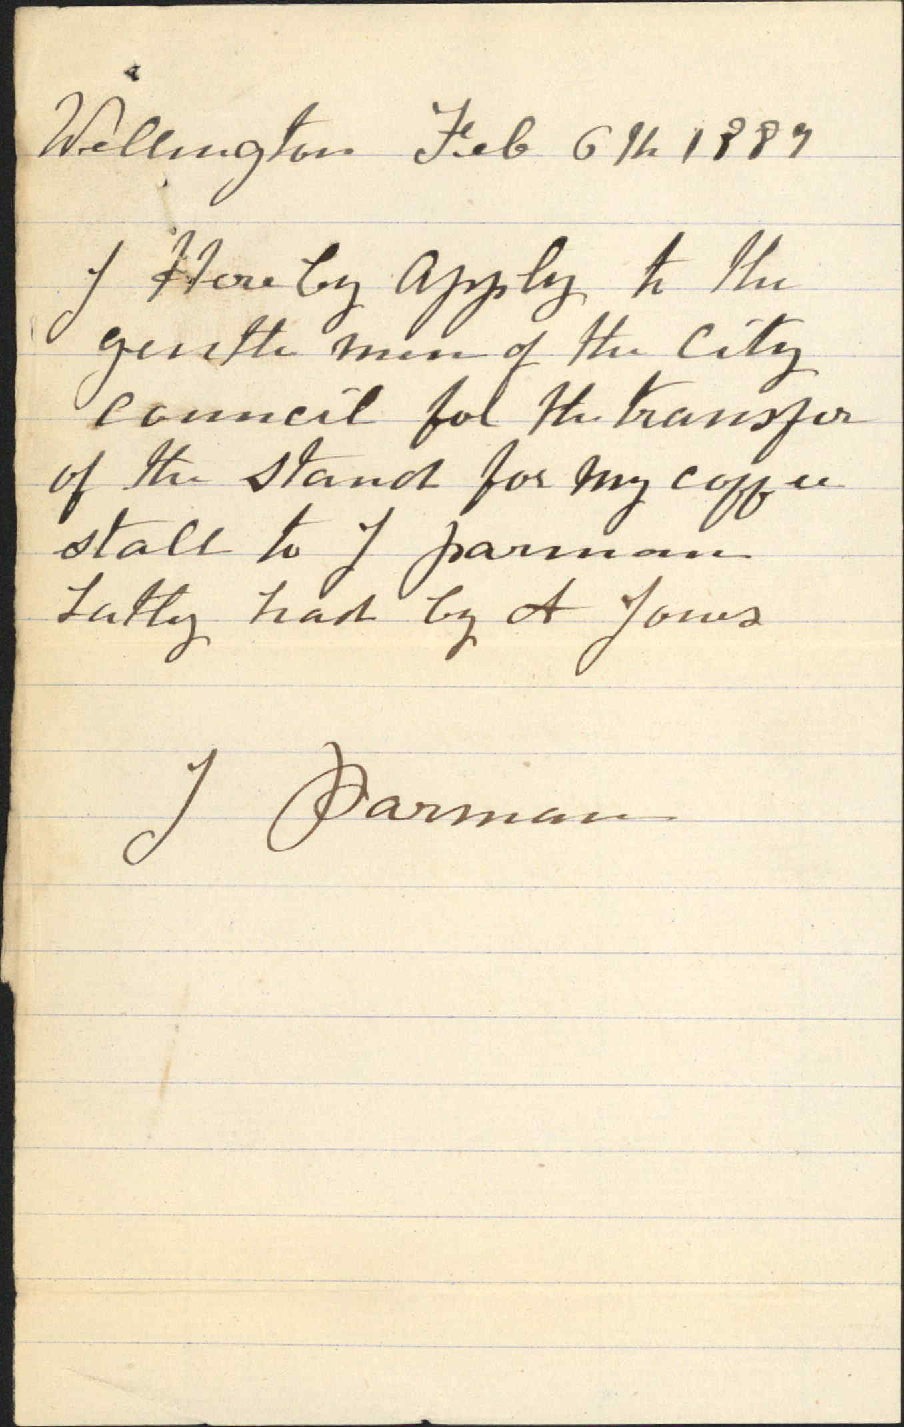 Wellington Feb 6th 1889
I Hereby Apply to the
gentle men of the City
Council fol the transfer
of the stand for my coffee
stall to J parman
Latly had by A Jones
J Parman